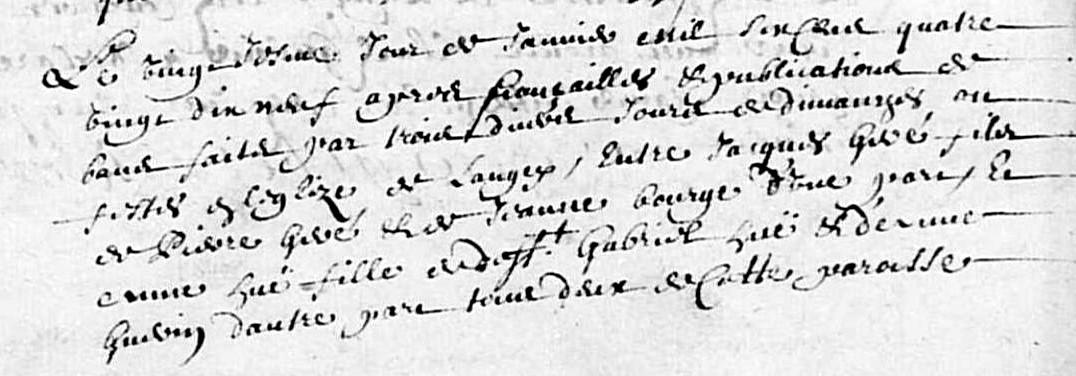 Le vingt Jesme Jour de Janvier mil six Cens quatre
vingt dix neuf apres fiançailles & publications de
bans faites par trois divers Jours de dimanches ou
festes en leglize de Langey, Entre Jacques fils
de Pierre & de Jeanne bourge d'une part, Et
fille de deff.t Gabriel huë & de
d'autre part tous deux de Cette paroisse